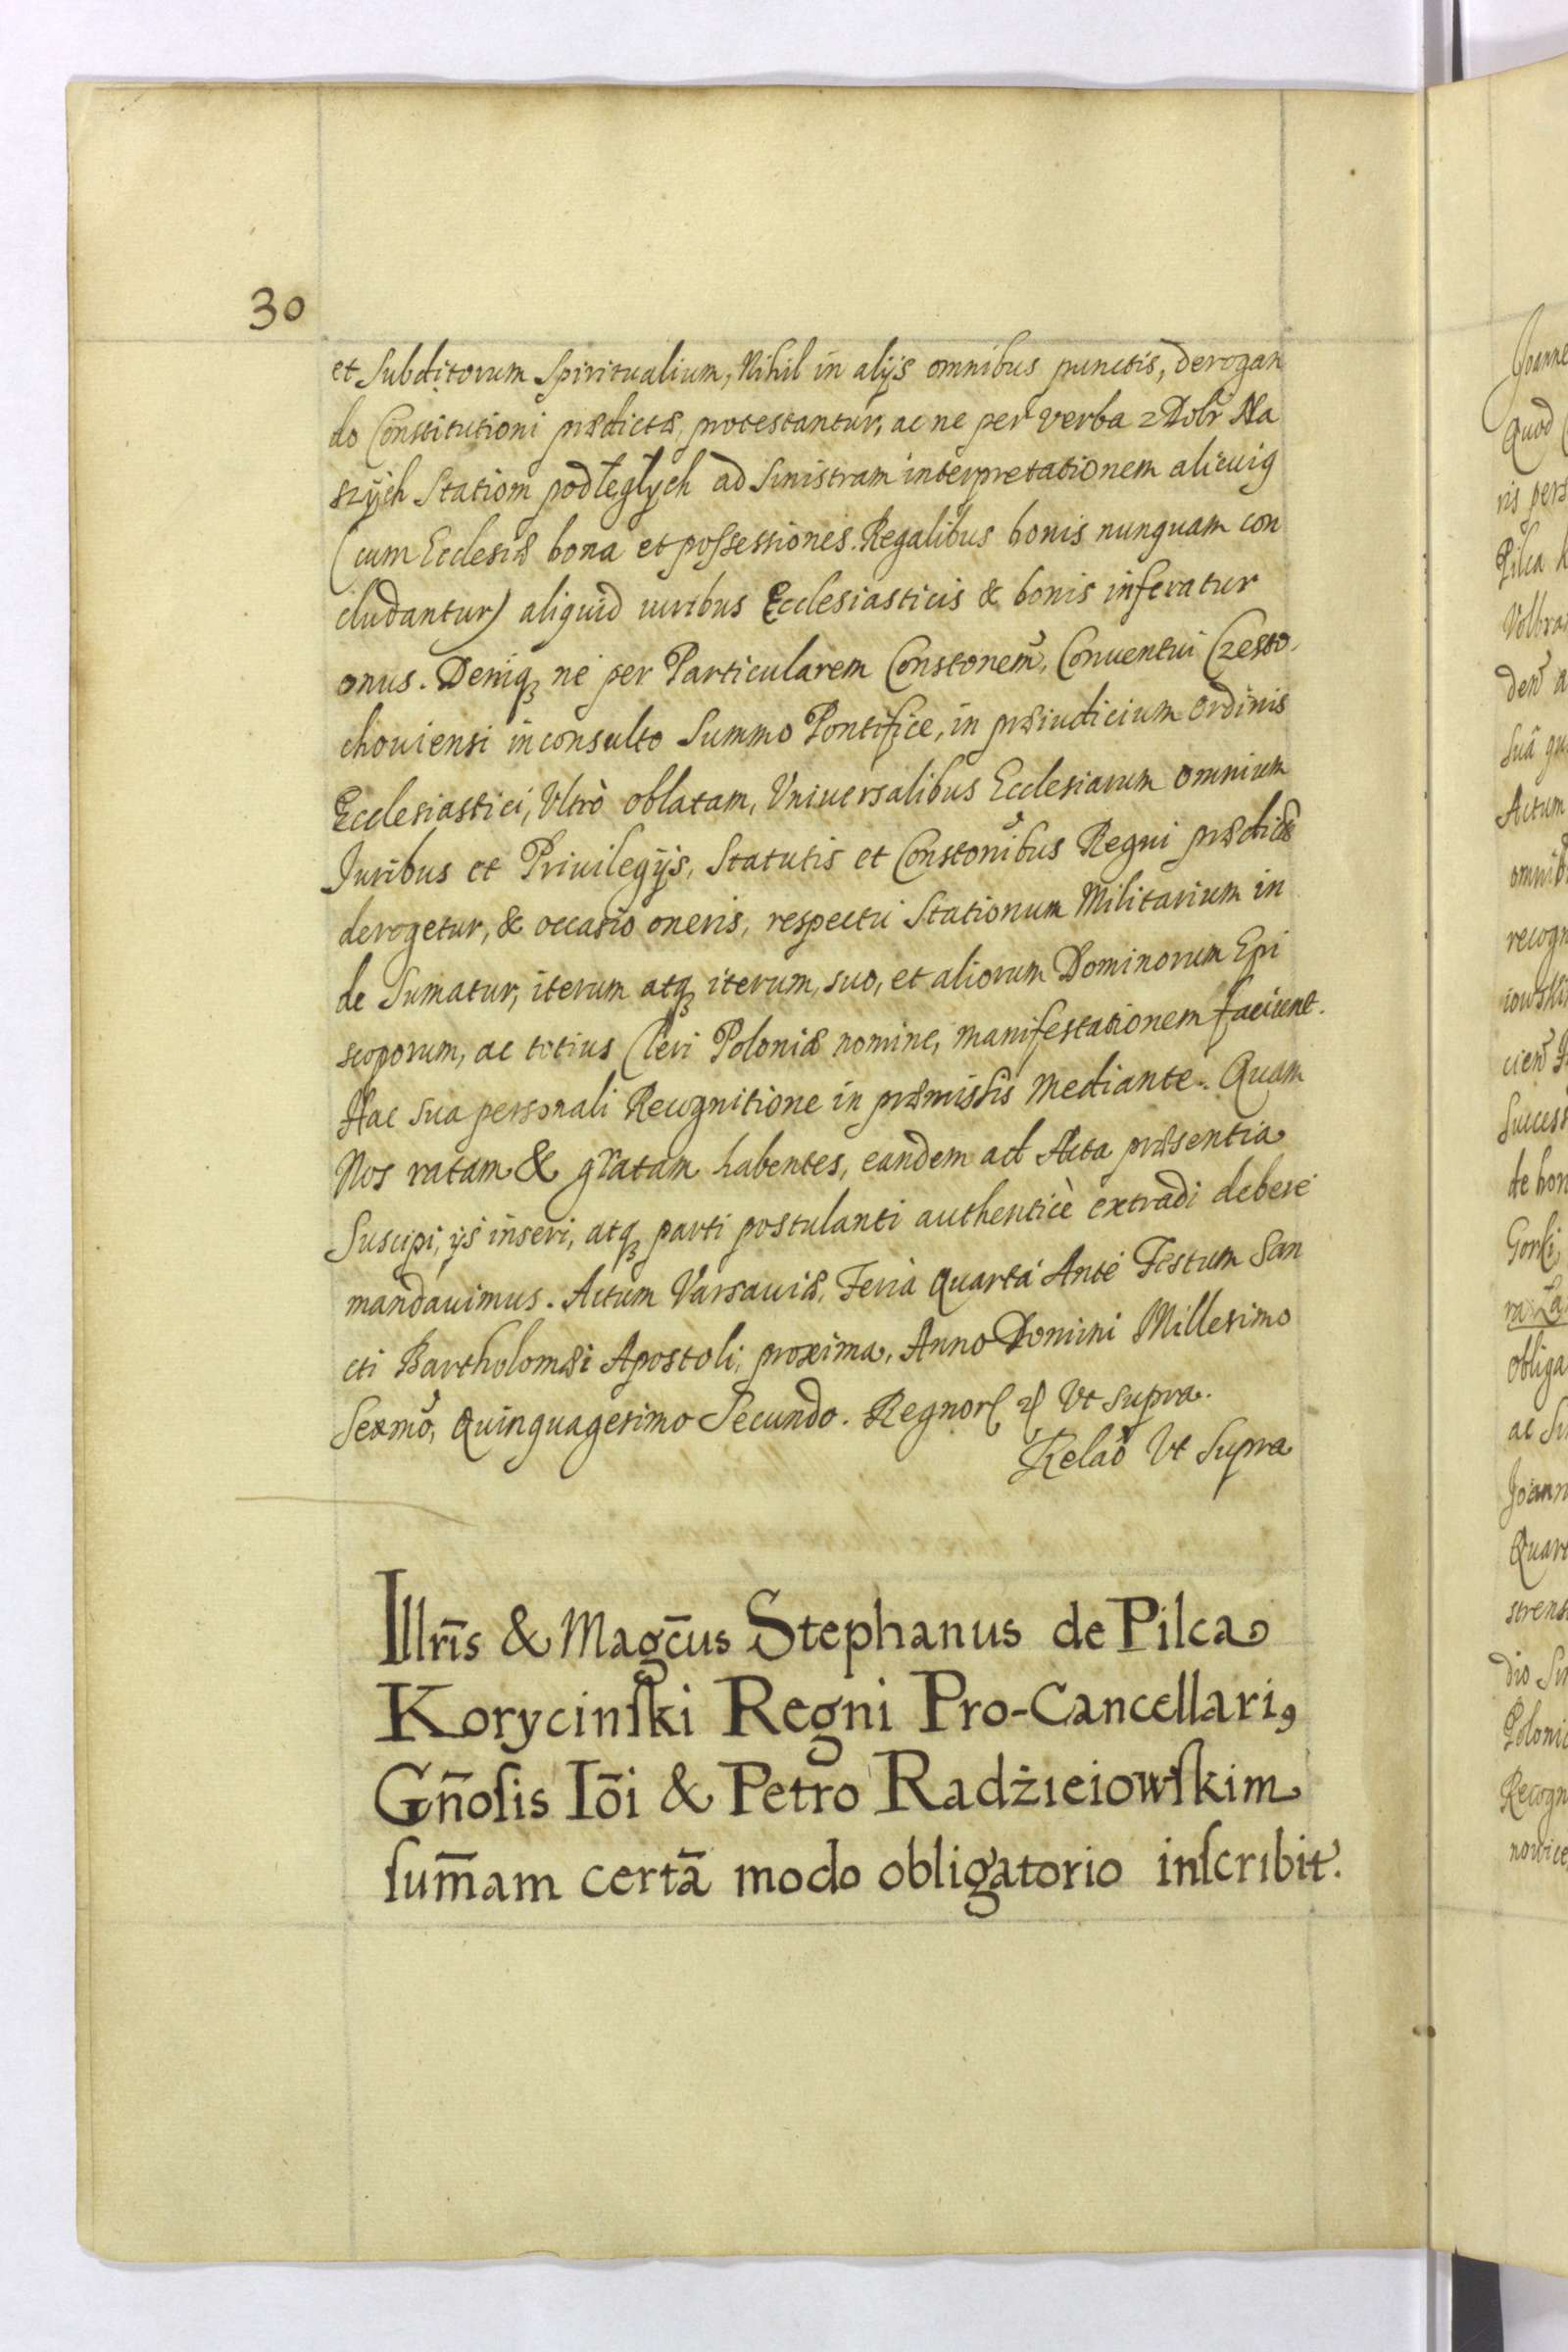 30
et Subditorum Spiritualium, Nihil in alijs omnibus punctis, derogan
do Constitutioni prædictæ, protestantur, ac ne per verba z Dobr Na
szych Statiom podległych ad sinistram interpretationem alicuiq
(cum Ecclesiæ bona et possessiones Regalibus bonis nunquam con
cludantur) aliquid iuribus Ecclesiasticis & bonis inferatur
onus. Deniqꝫ ne per Particularem Constonem̃, Conuentui Czesto-
chouiensi inconsulto Summo Pontifice, in præiudicium ordinis
Ecclesiastici, Vltrò oblatam, Vniuersalibus Ecclesiarum omnium
Juribus et Priuilegijs, Statutis et Constoni̇̃bus Regni prædictis
derogetur, & occasio oneris, respectu Stationum Militarium in
de Sumatur, iterum atqꝫ iterum, suo, et aliorum Dominorum Epi
scoporum, ac totius Cleri Poloniæ nomine, manifestationem faciunt.
Hac sua personali Recognitione in præmissis mediante. Quam
Nos ratam & gratam habentes, eandem ad Acta præsentia
Suscipi, ijs inseri, atqꝫ parti postulanti authenticè extradi debere
mandauimus. Actum Varsauiæ, Feria Quarta Ante Festum San
cti Bartholomæi Apostoli, proxima, Anno Domini Millesimo
Sexmõ, Quinquagesimo Secundo. Regnor̃ Vt supra.
Relaõ Vt Supra
Illrĩs & Magc̃us Stephanus de Pilca
Korycinſki Regni Pro-Cancellariꝰ
Gñoſis Iõi & Petro Radżieiowſkim
ſum̃am certā modo obligatorio inſcribit.
Joanne
Quod
ris pers
Pilca
Volbra
Actum
recogn
Success
de bon
Gorki
obliga
Joann
Quar
strens
Poloni
Recogn